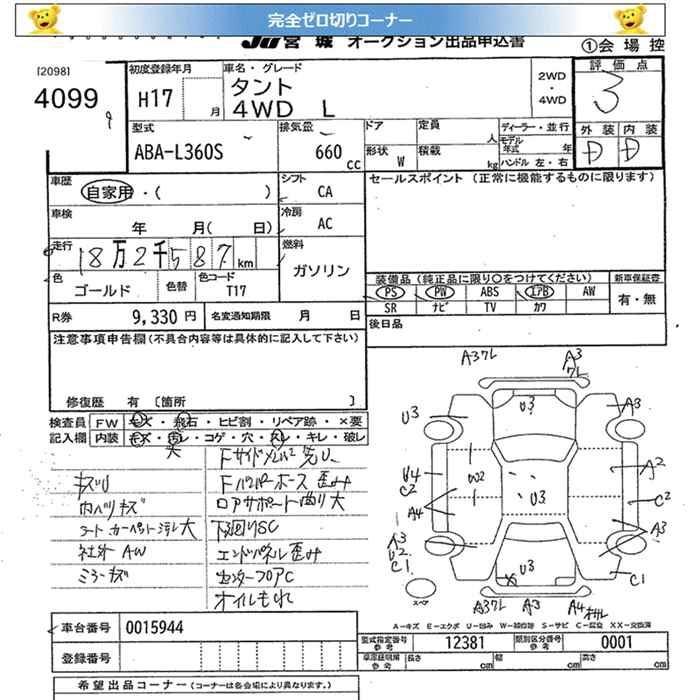 完全ゼロ切りコーナー
JU 宮城 オークション出品申込書
①会場控
[2098]
4099
初度登録年月
H17 月
車名・グレード
タント
4WD L
2WD
・
4WD
評価点
3
型式
ABA-L360S
排気量
660 cc
ドア
形状 W
定員 人
積載 kg
ディーラー・並行
モデル年式 年
ハンドル 左・右
外装 内装
D D
車歴
自家用・( )
シフト
CA
セールスポイント (正常に機能するものに限ります)
車検
年 月( 日)
冷房
AC
走行
18万2千587 km
燃料
ガソリン
色
ゴールド
色替
色コード
T17
装備品 (純正品に限り○をつけてください)
新車保証書
PS PW ABS エアB AW
有・無
SR ナビ TV カワ
R券 9,330 円
名変通知期限 月 日
後日品
注意事項申告欄 (不具合内容等は具体的に記入して下さい)
修復歴 有 [箇所 ]
検査員 FW キズ・飛石・ヒビ割・リペア跡・×要
記入欄 内装 キズ・汚レ・コゲ・穴・スレ・キレ・破レ
大
Fサイドメンバー先U
キズU
Fバンパーホース 歪み
内ハリキズ
ロアサポート曲り大
フロートカーペット汚レ大
下回りSC
社外 AW
エンドパネル歪み
ミラーキズ
センターフロアC
オイルもれ
A3ワレ
A3
ワレ
U3
U3
A3
U4
C2
A4
W2
U3
A2
C2
A3
A3
U2
C1
U3
C1
スペア
A3ワレ
A3
A4
A-キズ E-エクボ U-凹み W-補修跡 S-サビ C-腐食 XX-交換済
車台番号 0015944
型式指定番号
参考
12381
類別区分番号
参考
0001
登録番号
車庫証明用
参考
長さ cm
幅 cm
高さ cm
希望出品コーナー (コーナーは各会場により異なります。)